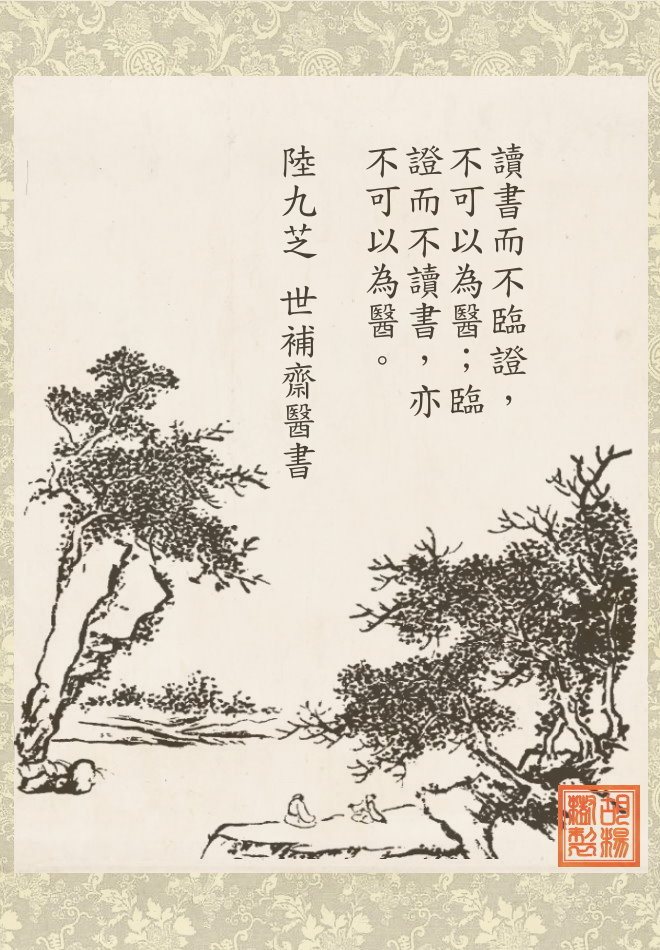 讀書而不臨證，
不可以為醫；臨
證而不讀書，亦
不可以為醫。
陸九芝 世補齋醫書